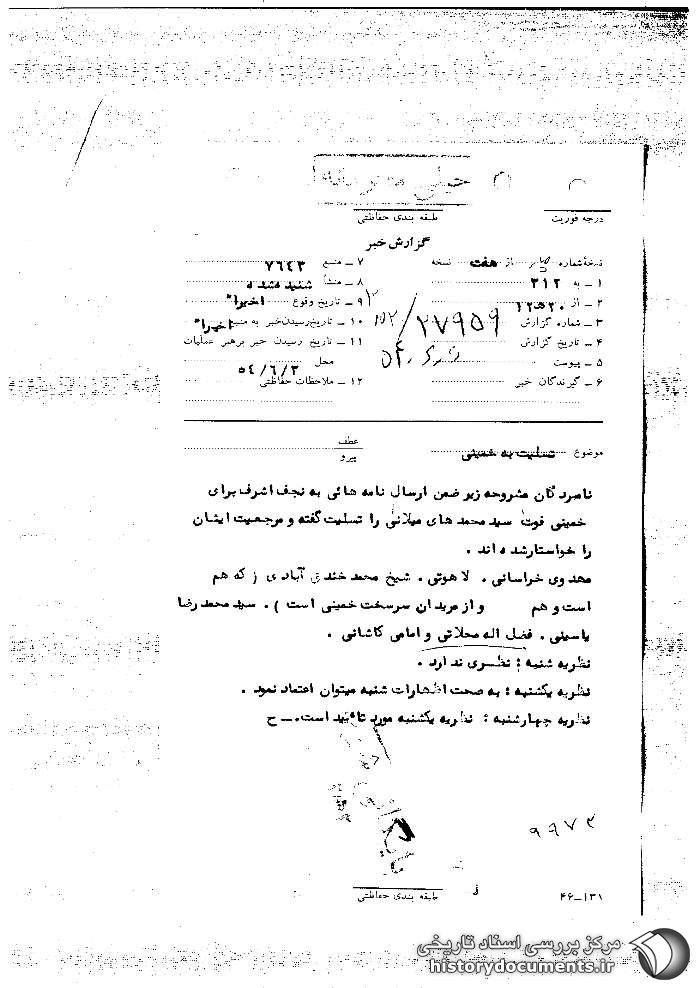 خیلی محرمانه
درجه فوریت
طبقه بندی حفاظتی
گزارش خبر
نسخه شماره از هفت نسخه
۱ ـ به ۳۱۲
۲ ـ از ۲۰ ه ۱۲
۳ ـ شماره گزارش ۲۷۹۵۹
۴ ـ تاریخ گزارش
۵ ـ پیوست
۶ ـ گیرندگان خبر
۷ ـ منبع ۷۶۴۳
۸ ـ منشأ شنیده شده
۹ ـ تاریخ وقوع اخیرا"
۱۰ ـ تاریخ رسیدن خبر به منبع اخیرا"
۱۱ ـ تاریخ رسیدن خبر برهبر عملیات
محل ۵۴/۶/۳
۱۲ ـ ملاحظات حفاظتی
موضوع تسلیت به خمینی
عطف
پیرو
نامبردگان مشروحه زیر ضمن ارسال نامه هائی به نجف اشرف برای
خمینی فوت سید محمد هادی میلانی را تسلیت گفته و مرجعیت ایشان
را خواستار شده اند .
مهدوی خراسانی . لاهوتی . شیخ محمد خندق آبادی ( که هم
است و هم و از مریدان سرسخت خمینی است ) . سید محمد رضا
یاسینی . فضل اله محلاتی و امامی کاشانی .
نظریه شنبه : نظری ندارد .
نظریه یکشنبه : به صحت اظهارات شنبه میتوان اعتماد نمود .
نظریه چهارشنبه : نظریه یکشنبه مورد تائید است . ـ ح
بایگانی
۹۹۷۳
طبقه بندی حفاظتی
۴۶ـ۱۳۱
مرکز بررسی اسناد تاریخی
historydocuments.ir